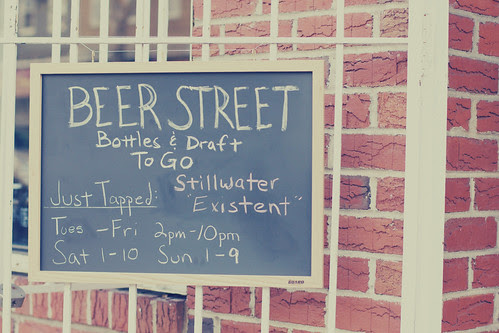 BEER STREET
Bottles & Draft
To Go
Just Tapped: Stillwater
"Existent"
Tues - Fri 2pm-10pm
Sat 1-10 Sun 1-9